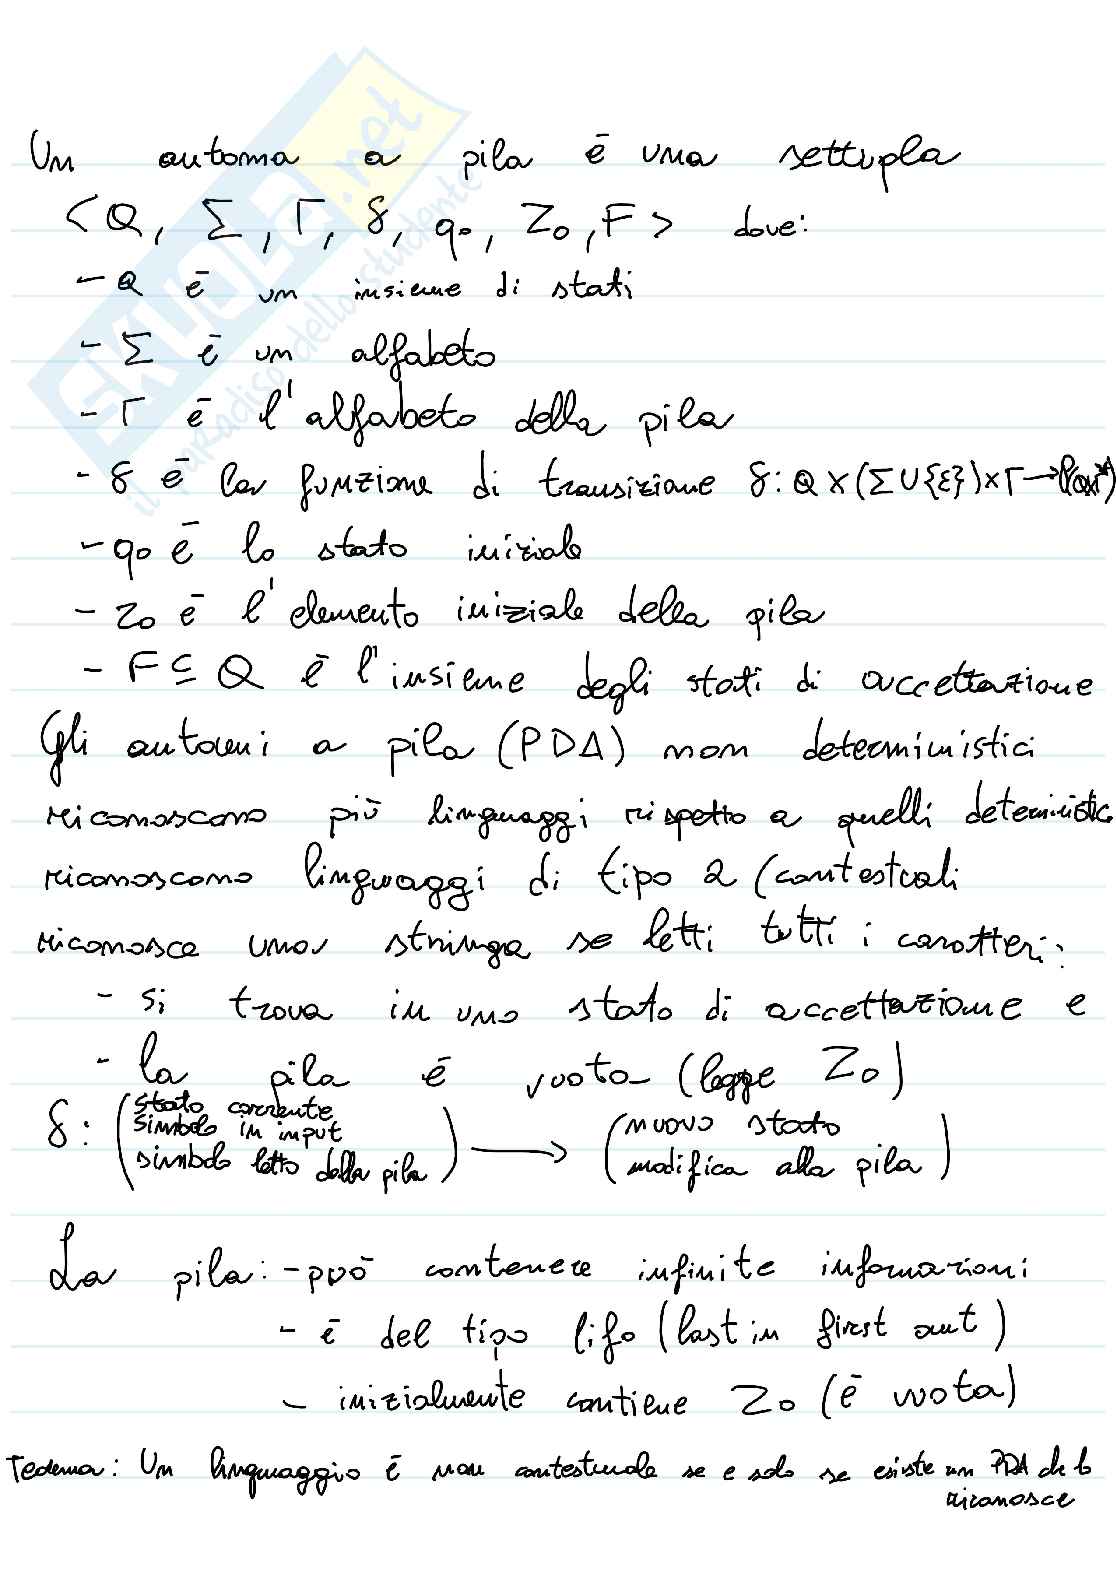 Un automa a pila è una settupla
<Q, Σ, Γ, δ, q0, Z0, F> dove:
- Q è un insieme di stati
- Σ è un alfabeto
- Γ è l'alfabeto della pila
- δ è la funzione di transizione δ: Q x (Σ U {ε}) x Γ →
- q0 è lo stato iniziale
- Z0 è l'elemento iniziale della pila
- F ⊆ Q è l'insieme degli stati di accettazione
Gli automi a pila (PDA) non deterministici
riconoscono più linguaggi rispetto a quelli deterministic
riconoscono linguaggi di tipo 2 (contestuali
riconosce una stringa se letti tutti i caratteri:
- si trova in uno stato di accettazione e
- la pila è vuota (legge Z0)
δ: (stato corrente
simbolo in input
simbolo letto dalla pila) → (nuovo stato
modifica alla pila)
La pila: - può contenere infinite informazioni
- è del tipo lifo (last in first out)
- inizialmente contiene Z0 (è vuota)
Teorema: Un linguaggio è non contestuale se e solo se esiste un PDA che lo
riconosce
SKUOLA.net
il paradiso dello studente